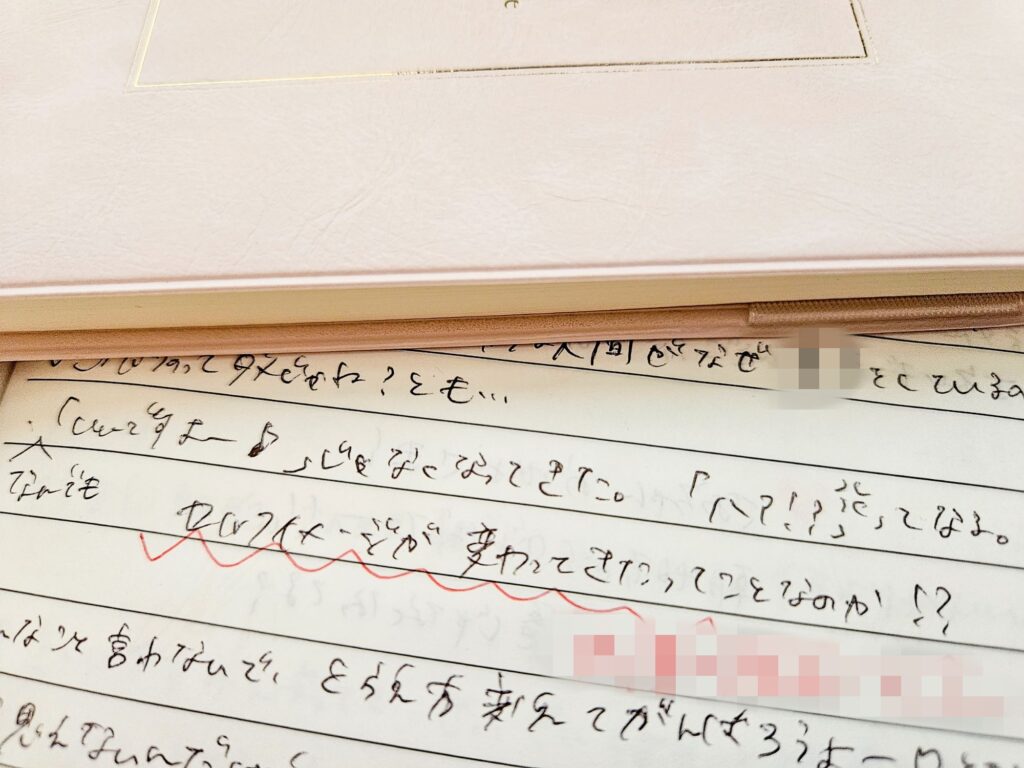 ってダメじゃね？とも…
人間がなぜ
をしているの
「いいですよー♪」じゃなくなってきた。「ハ？！？」ってなる。
なんでも
セルフイメージが変わってきたってことなのか！？
なこと言わないで、とらえ方変えてがんばろうよー
思えないんだ